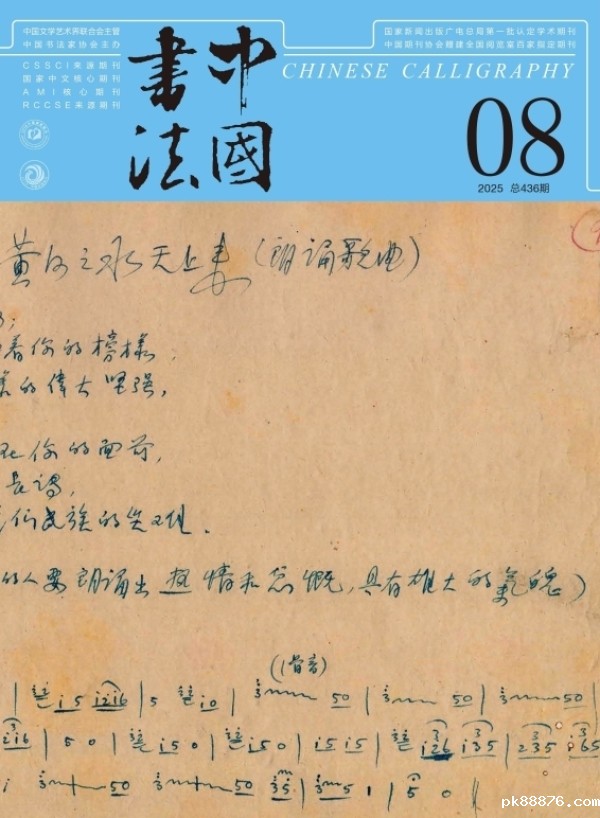 中国文学艺术界联合会主管
中国书法家协会主办
CSSCI来源期刊
国家中文核心期刊
AMI核心期刊
RCCSE来源期刊
中國書法
国家新闻出版广电总局第一批认定学术期刊
中国期刊协会赠建全国阅览室百家指定期刊
CHINESE CALLIGRAPHY
08
2025 总436期
黄河之水天上来(朗誦歌曲)
着你的榜樣,
的偉大坚强,
在你的面前,
長
民族的
的人要朗誦出热情和忿慨,具有雄大的氣魄)
pk88876.com